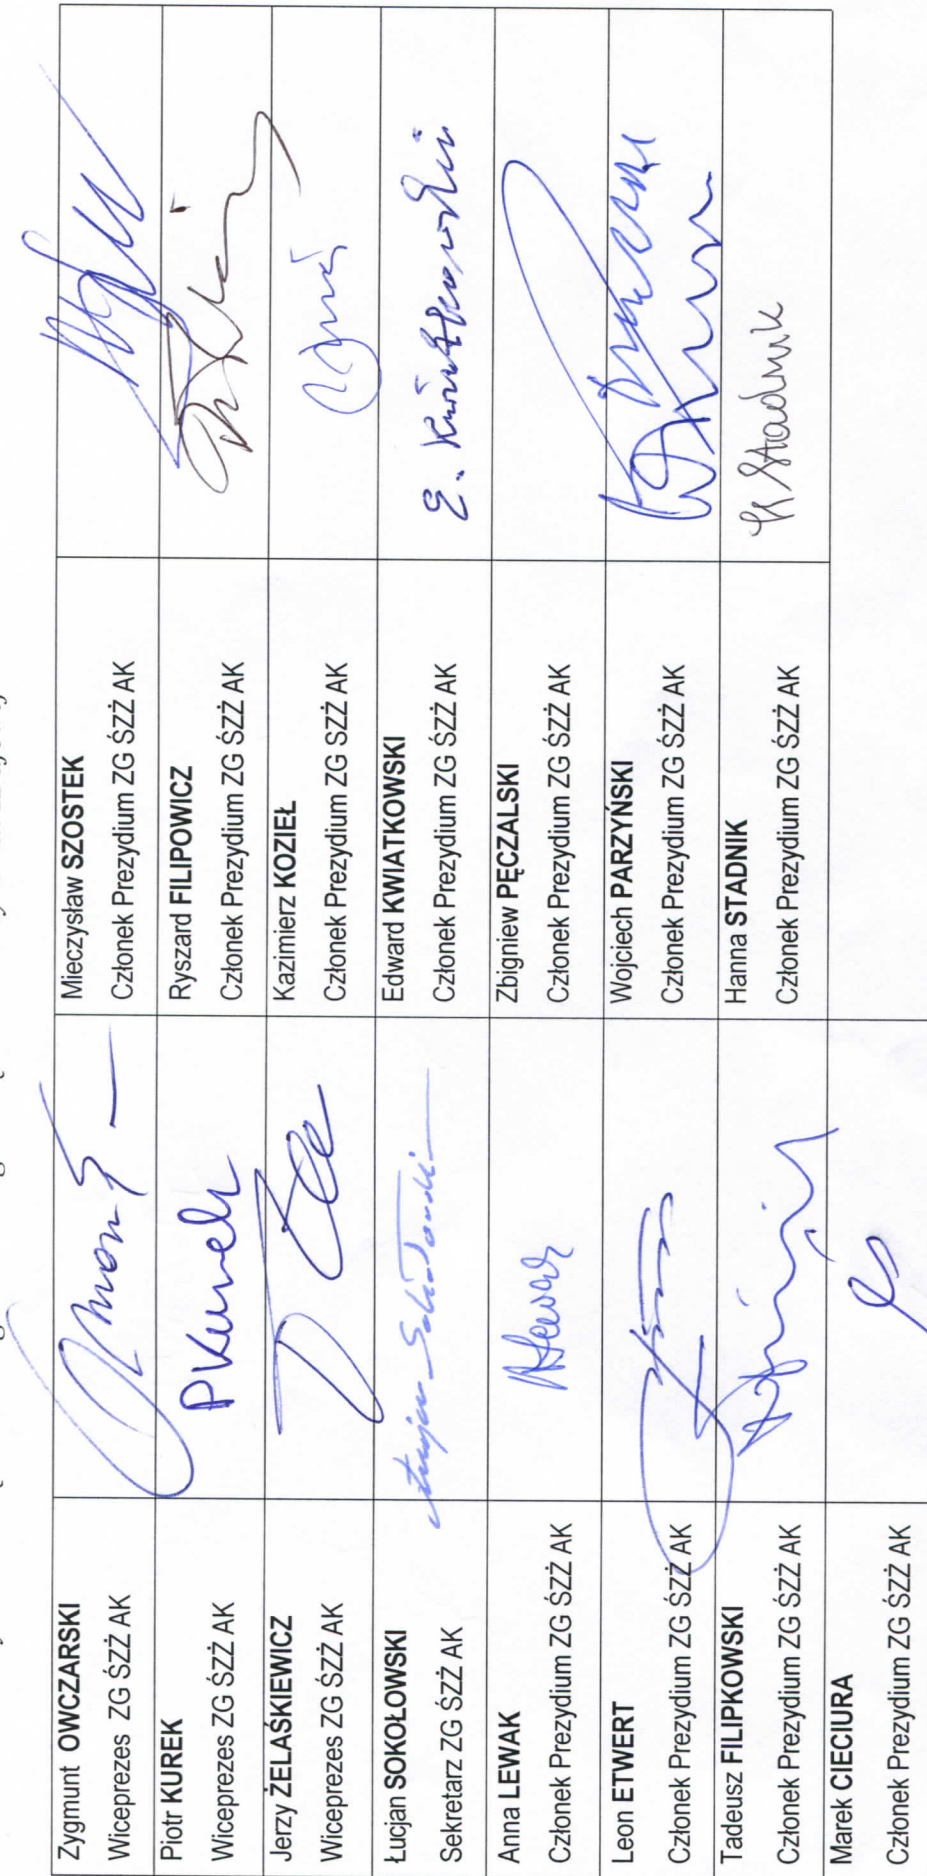 Zygmunt OWCZARSKI
Wiceprezes ZG ŚZŻ AK
Mieczysław SZOSTEK
Członek Prezydium ZG ŚZŻ AK
Piotr KUREK
Wiceprezes ZG ŚZŻ AK
PKurek
Ryszard FILIPOWICZ
Członek Prezydium ZG ŚZŻ AK
Jerzy ŻELAŚKIEWICZ
Wiceprezes ZG ŚZŻ AK
Kazimierz KOZIEŁ
Członek Prezydium ZG ŚZŻ AK
Łucjan SOKOŁOWSKI
Sekretarz ZG ŚZŻ AK
Edward KWIATKOWSKI
Członek Prezydium ZG ŚZŻ AK
E. Kwiatkowski
Anna LEWAK
Członek Prezydium ZG ŚZŻ AK
ALewak
Zbigniew PĘCZALSKI
Członek Prezydium ZG ŚZŻ AK
Leon ETWERT
Członek Prezydium ZG ŚZŻ AK
Wojciech PARZYŃSKI
Członek Prezydium ZG ŚZŻ AK
Tadeusz FILIPKOWSKI
Członek Prezydium ZG ŚZŻ AK
Hanna STADNIK
Członek Prezydium ZG ŚZŻ AK
H Stadnik
Marek CIECIURA
Członek Prezydium ZG ŚZŻ AK